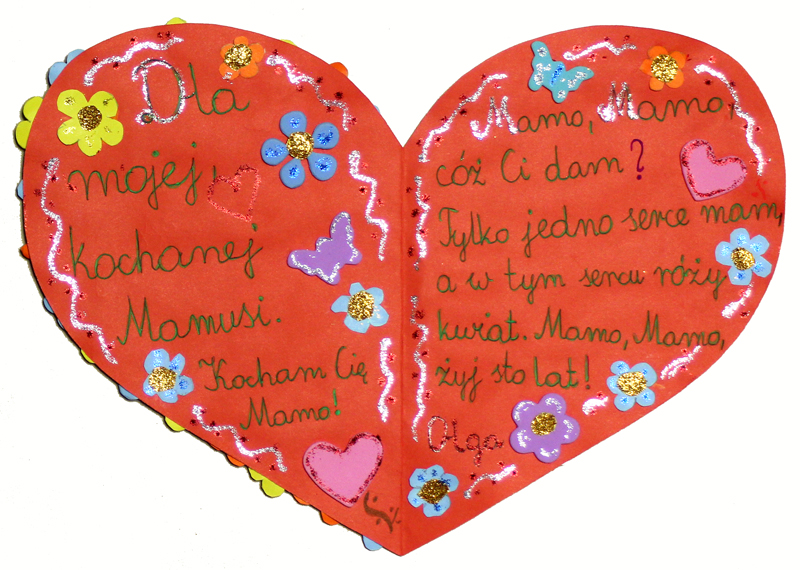 Dla
mojej,
kochanej
Mamusi.
Kocham Cię
Mamo!
Mamo, Mamo,
cóż Ci dam?
Tylko jedno serce mam,
a w tym sercu róży
kwiat. Mamo, Mamo,
żyj sto lat!
Olga